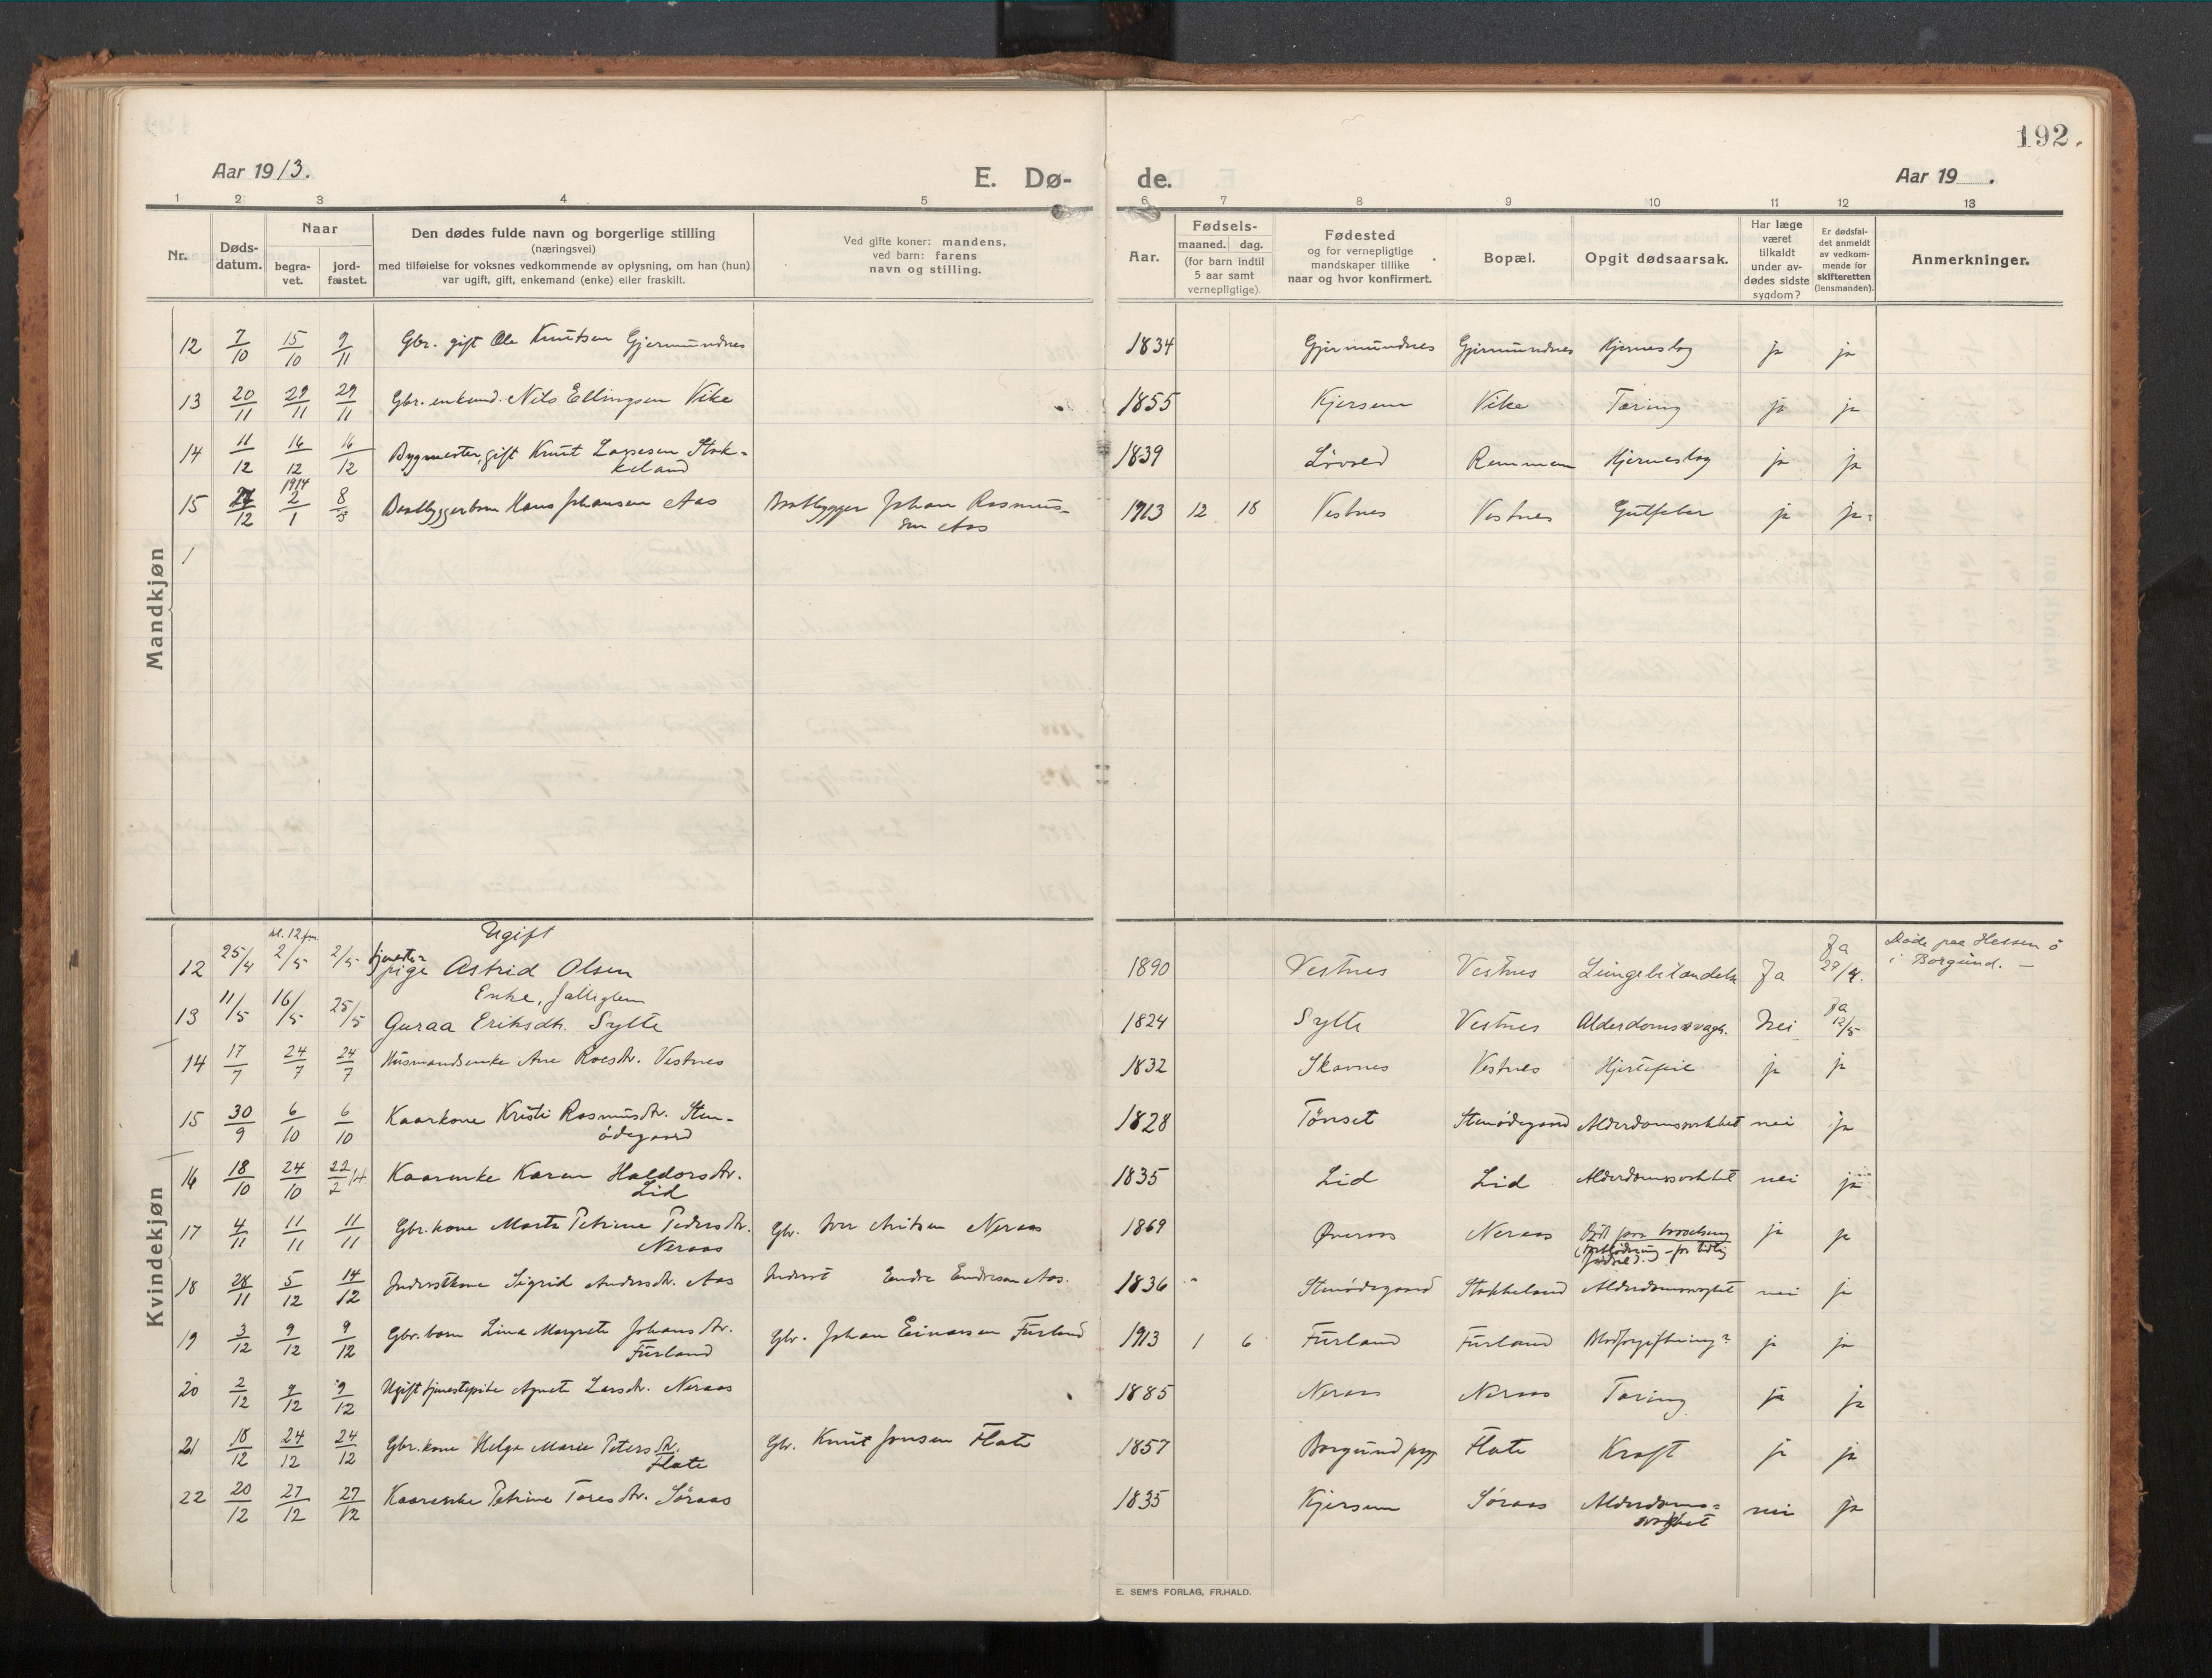 192.
Aar 1913. E. Dø- de. Aar 19 .
1 2 3 4 5 6 7 8 9 10 11 12 13
Nr. Døds-datum. Naar begra-vet. jord-fæstet. Den dødes fulde navn og borgerlige stilling (næringsvei) med tilføielse for voksnes vedkommende av oplysning, om han (hun) var ugift, gift, enkemand (enke) eller fraskilt. Ved gifte koner: mandens, ved barn: farens navn og stilling. Aar. Fødsels- maaned. dag. (for barn indtil 5 aar samt vernepligtige). Fødested og for vernepligtige mandskaper tillike naar og hvor konfirmert. Bopæl. Opgit dødsaarsak. Har læge været tilkaldt under av-dødes sidste sygdom? Er dødsfal-det anmeldt av vedkom-mende for skifteretten (lensmanden). Anmerkninger.
Mandkjøn
12 7/10 15/10 9/11 Gbr. gift Ole Knutsen Gjermundnes 1834 Gjermundnes Gjermundnes Hjerneslag ja ja
13 20/11 29/11 29/11 Gbr. enkemd. Nils Ellingsen Vike 1855 Kjersem Vike Tæring ja ja
14 11/12 16/12 16/12 Bygmester, gift Knut Lassesen Stok-
keland 1839 Remmem Hjerneslag ja ja
15 27/12 1914 2/1 8/3 Baatbyggerbarn Hans Johansen Aas Baatbygger Johan Rasmus-
sen Aas 1913 12 18 Vestnes Vestnes Gulfeber ja ja
1
Kvindekjøn
kl. 12 fm. Ugift
12 25/4 2/5 2/5 tjeneste-
pige Astrid Olsen 1890 Vestnes Vestnes Lungebetændelse Ja Ja 27/4. Døde paa Hessen ö
i Borgund. —
Enke, fattiglem
13 11/5 16/5 25/5 Guraa Eriksdtr. Sylte 1824 Sylte Vestnes Alderdomssvagh. Nei Ja 12/5
14 17/7 24/7 24/7 Husmandsenke Ane Roesdtr. Vestnes 1832 Skavnes Vestnes Hjertefeil ja ja
15 30/9 6/10 6/10 Kaarkone Kristi Rasmusdtr. Sten-
ödegaard 1828 Tönset Stenödegaard Alderdomssvakhet nei ja
16 18/10 24/10 22/2 14 Kaarenke Karen Haldorsdtr.
Lid 1835 Lid Lid Alderdomssvakhet nei ja
17 4/11 11/11 11/11 Gbr. kone Marta Petrine Pedersdtr.
Neraas Gbr. Iver Neraas 1869 Øveraas Neraas ja ja
18 28/11 5/12 14/12 Inderstkone Sigrid Andersdtr. Aas Inderst Endre Endresen Aas. 1836 Stenödegaard Stokkeland Alderdomssvaghet nei ja
19 3/12 9/12 9/12 Gbr. barn Lina Margrete Johansdtr.
Furland Gbr. Johan Einarsen Furland 1913 1 6 Furland Furland Blodforgiftning? ja ja
20 2/12 9/12 9/12 Ugift tjenestepike Agnete Larsdtr. Neraas 1885 Neraas Neraas Tæring ja ja
21 18/12 24/12 24/12 Gbr. kone Helga Marie Petersdtr.
Flate Gbr. Knut Jonsen Flate 1857 Borgund prgj. Flate Kræft ja ja
22 20/12 27/12 27/12 Kaarenke Petrine Toresdtr. Söraas 1835 Kjersem Söraas Alderdoms-
svakhet nei ja
E. SEM'S FORLAG, FR.HALD.